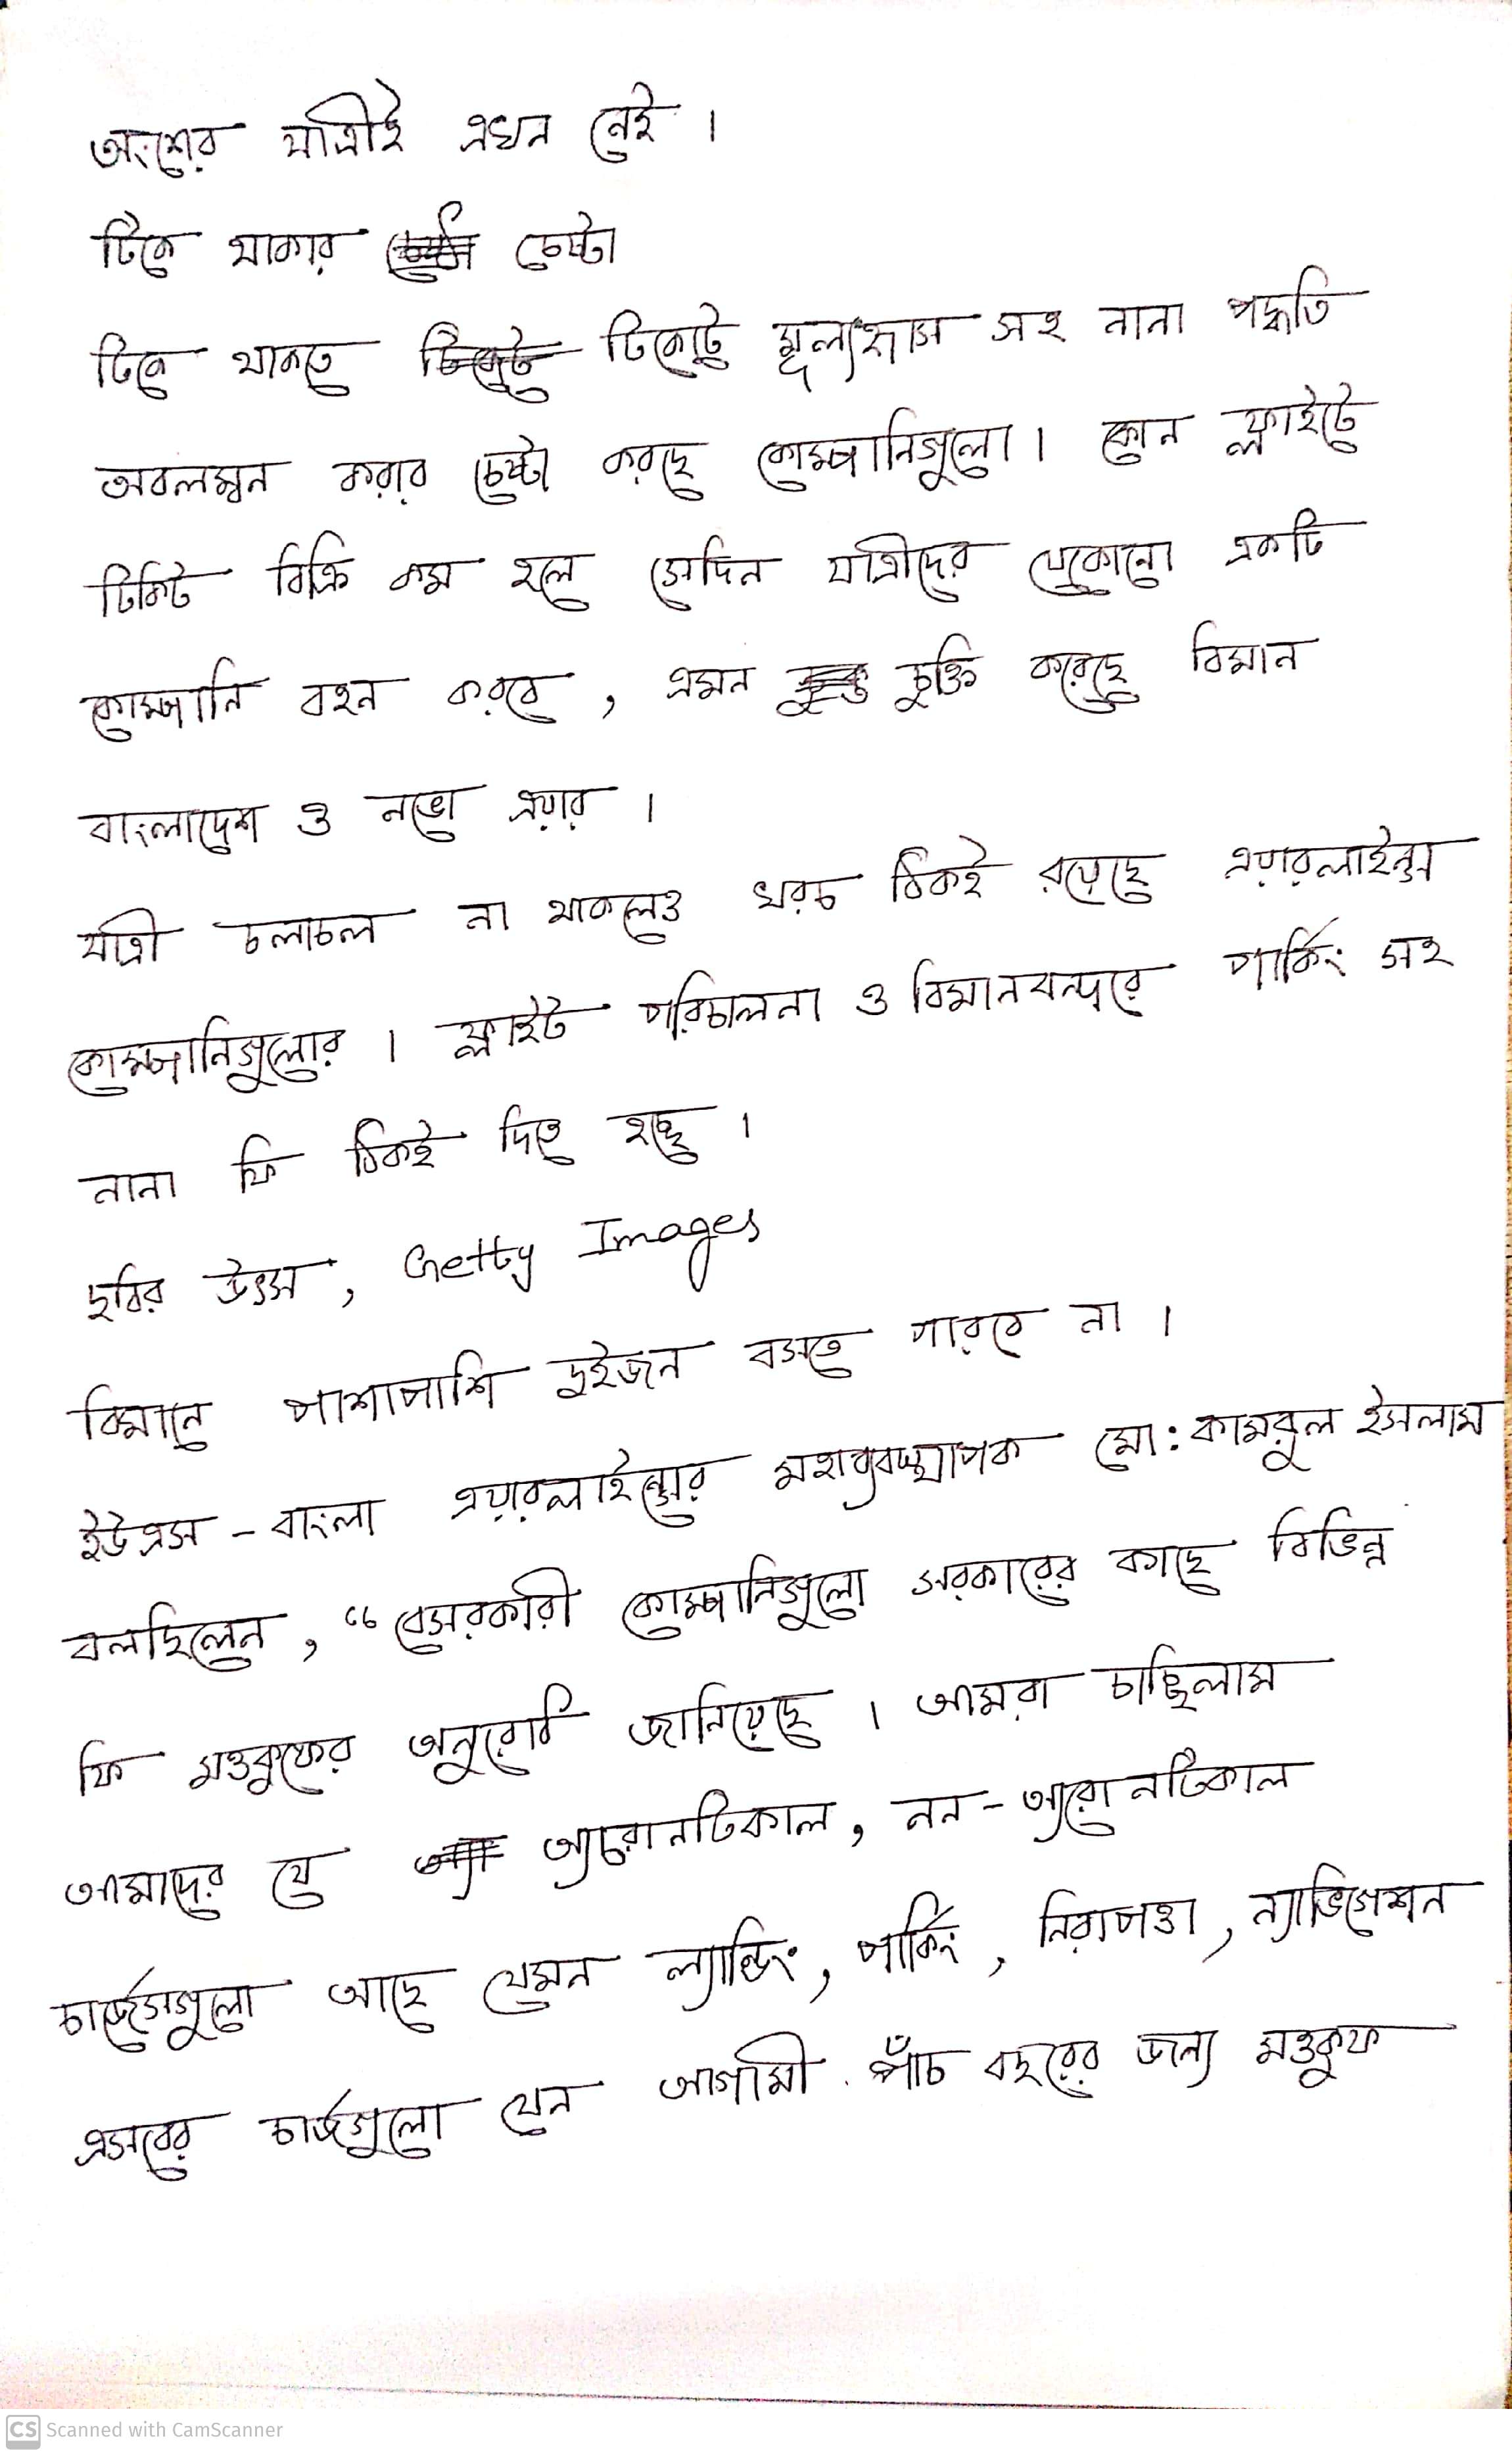 অংশের যাত্রীই এখন নেই ।
টিকে থাকার চেষ্টা
টিকে থাকতে টিকেটে মূল্যহ্রাস সহ নানা পদ্ধতি
অবলম্বন করার চেষ্টা করছে কোম্পানিগুলো । কোন ফ্লাইটে
টিকিট বিক্রি কম হলে সেদিন যাত্রীদের যেকোনো একটি
কোম্পানি বহন করবে , এমন চুক্তি করেছে বিমান
বাংলাদেশ ও নভো এয়ার ।
যাত্রী চলাচল না থাকলেও খরচ ঠিকই রয়েছে এয়ারলাইন্স
কোম্পানিগুলোর । ফ্লাইট পরিচালনা ও বিমানবন্দরে পার্কিং সহ
নানা ফি ঠিকই দিতে হচ্ছে ।
ছবির উৎস , Getty Images
বিমানে পাশাপাশি দুইজন বসতে পারবে না ।
ইউএস - বাংলা এয়ারলাইন্সের মহাব্যবস্থাপক মো : কামরুল ইসলাম
বলছিলেন , “ বেসরকারী কোম্পানিগুলো সরকারের কাছে বিভিন্ন
ফি মওকুফের অনুরোধ জানিয়েছে । আমরা চাচ্ছিলাম
আমাদের যে অ্যারোনটিকাল , নন - অ্যারোনটিকাল
চার্জেসগুলো আছে যেমন ল্যান্ডিং , পার্কিং , নিরাপত্তা , ন্যাভিগেশন
এসবের চার্জগুলো যেন আগামী পাঁচ বছরের জন্য মওকুফ
CS Scanned with CamScanner